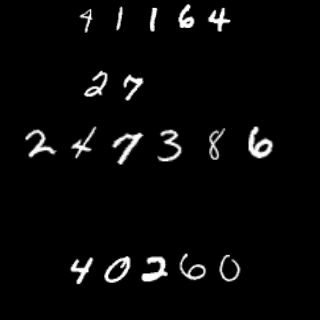 41164
27
247386
40260